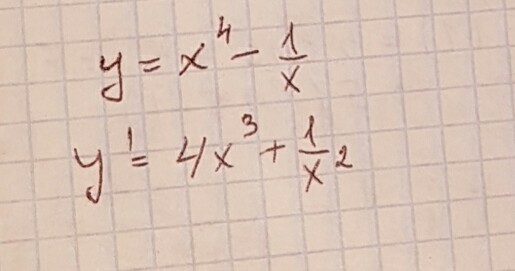 y = x⁴ - 1/x
y' = 4x³ + 1/x²